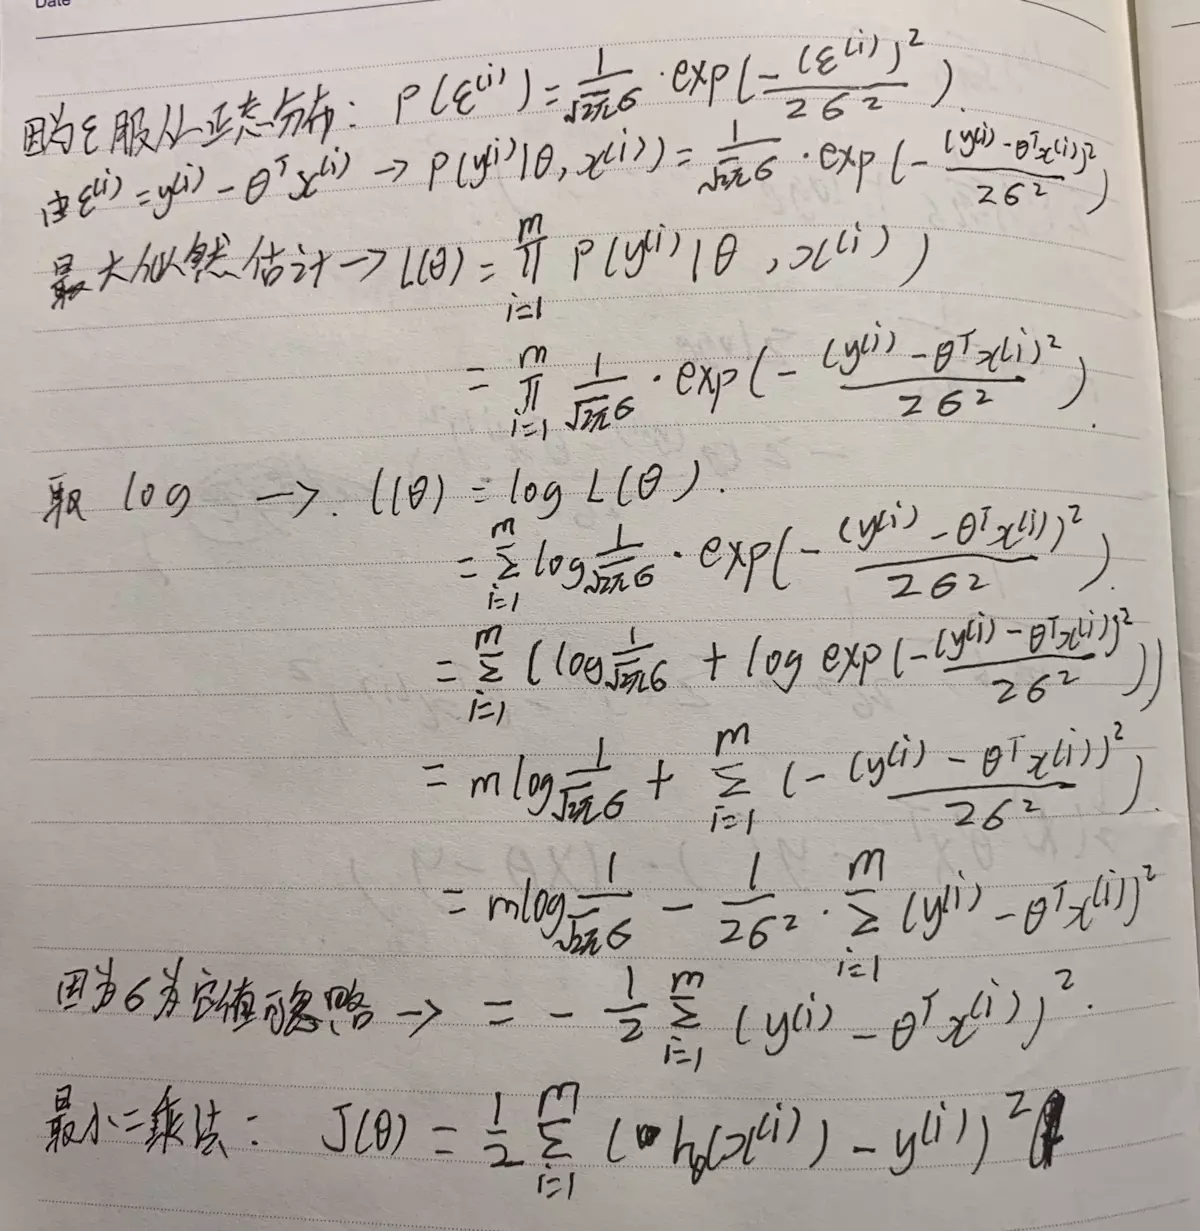 Date
因为ε服从正态分布: P(ε⁽ⁱ⁾) = 1/(√2π σ) · exp(-(ε⁽ⁱ⁾)²/(2σ²)).
由ε⁽ⁱ⁾ = y⁽ⁱ⁾ - θᵀx⁽ⁱ⁾ → P(y⁽ⁱ⁾|θ, x⁽ⁱ⁾) = 1/(√2π σ) · exp(-(y⁽ⁱ⁾ - θᵀx⁽ⁱ⁾)²/(2σ²))
最大似然估计 → L(θ) = ∏ᵢ₌₁ᵐ P(y⁽ⁱ⁾|θ, x⁽ⁱ⁾)
= ∏ᵢ₌₁ᵐ 1/(√2π σ) · exp(-(y⁽ⁱ⁾ - θᵀx⁽ⁱ⁾)²/(2σ²)).
取 log → l(θ) = log L(θ).
= ∑ᵢ₌₁ᵐ log 1/(√2π σ) · exp(-(y⁽ⁱ⁾ - θᵀx⁽ⁱ⁾)²/(2σ²)).
= ∑ᵢ₌₁ᵐ (log 1/(√2π σ) + log exp(-(y⁽ⁱ⁾ - θᵀx⁽ⁱ⁾)²/(2σ²)))
= m log 1/(√2π σ) + ∑ᵢ₌₁ᵐ (-(y⁽ⁱ⁾ - θᵀx⁽ⁱ⁾)²/(2σ²)).
= m log 1/(√2π σ) - 1/(2σ²) · ∑ᵢ₌₁ᵐ (y⁽ⁱ⁾ - θᵀx⁽ⁱ⁾)²
因为σ为定值可忽略 → = - 1/2 ∑ᵢ₌₁ᵐ (y⁽ⁱ⁾ - θᵀx⁽ⁱ⁾)².
最小二乘法: J(θ) = 1/2 ∑ᵢ₌₁ᵐ (h_θ(x⁽ⁱ⁾) - y⁽ⁱ⁾)²